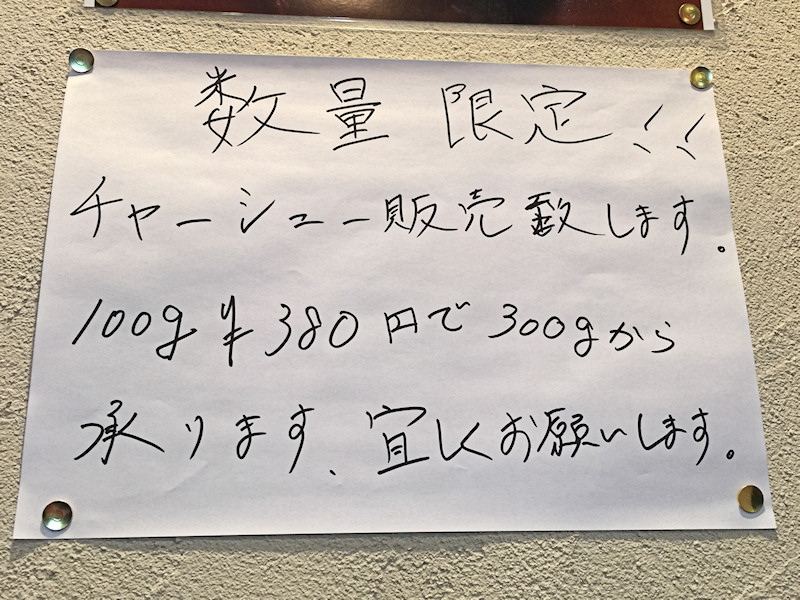 数量 限定!!
チャーシュー販売致します。
100g ¥380円で 300gから
承ります、宜しくお願いします。